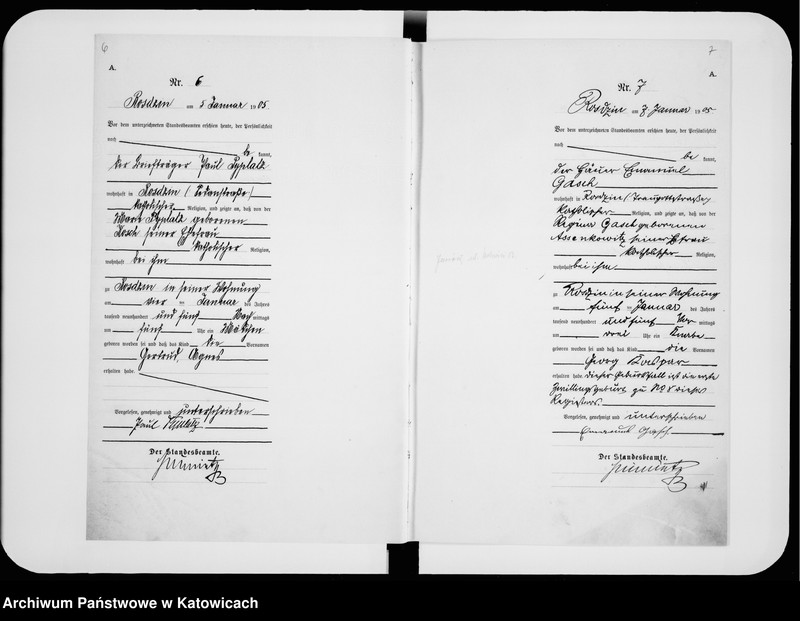 6
A.
Nr. 6
Rosdzin am 5 Januar 1905.
Vor dem unterzeichneten Standesbeamten erschien heute, der Persönlichkeit
nach
be kannt,
der Briefträger Paul
wohnhaft in Rosdzin
katholischer Religion, und zeigte an, daß von der
geborenen
seiner Ehefrau
katholischer Religion,
wohnhaft bei ihm
zu Rosdzin in seiner Wohnung
am vier ten Januar des Jahres
tausend neunhundert und fünf Nach mittags
um fünf Uhr ein Mädchen
geboren worden sei und daß das Kind die Vornamen
Gertrud, Agnes
erhalten habe.
Vorgelesen, genehmigt und unterschrieben
Paul
Der Standesbeamte.
7
A.
Nr. 7
Rosdzin am 7 Januar 1905
Vor dem unterzeichneten Standesbeamten erschien heute, der Persönlichkeit
nach
be kannt,
der Häuer Emanuel
Gasch
wohnhaft in Rosdzin
katholischer Religion, und zeigte an, daß von der
Regina Gasch geborenen
seiner Ehefrau
katholischer Religion,
wohnhaft bei ihm
zu Rosdzin in seiner Wohnung
am fünf ten Januar des Jahres
tausend neunhundert und fünf Vor mittags
um drei Uhr ein Knabe
geboren worden sei und daß das Kind die Vornamen
Georg Kaspar
erhalten habe. dieser Geburtsfall ist die erste
Zwillingsgeburt zu No 8 dieses
Registers.
Vorgelesen, genehmigt und unterschrieben
Emanuel Gasch
Der Standesbeamte.
Archiwum Państwowe w Katowicach